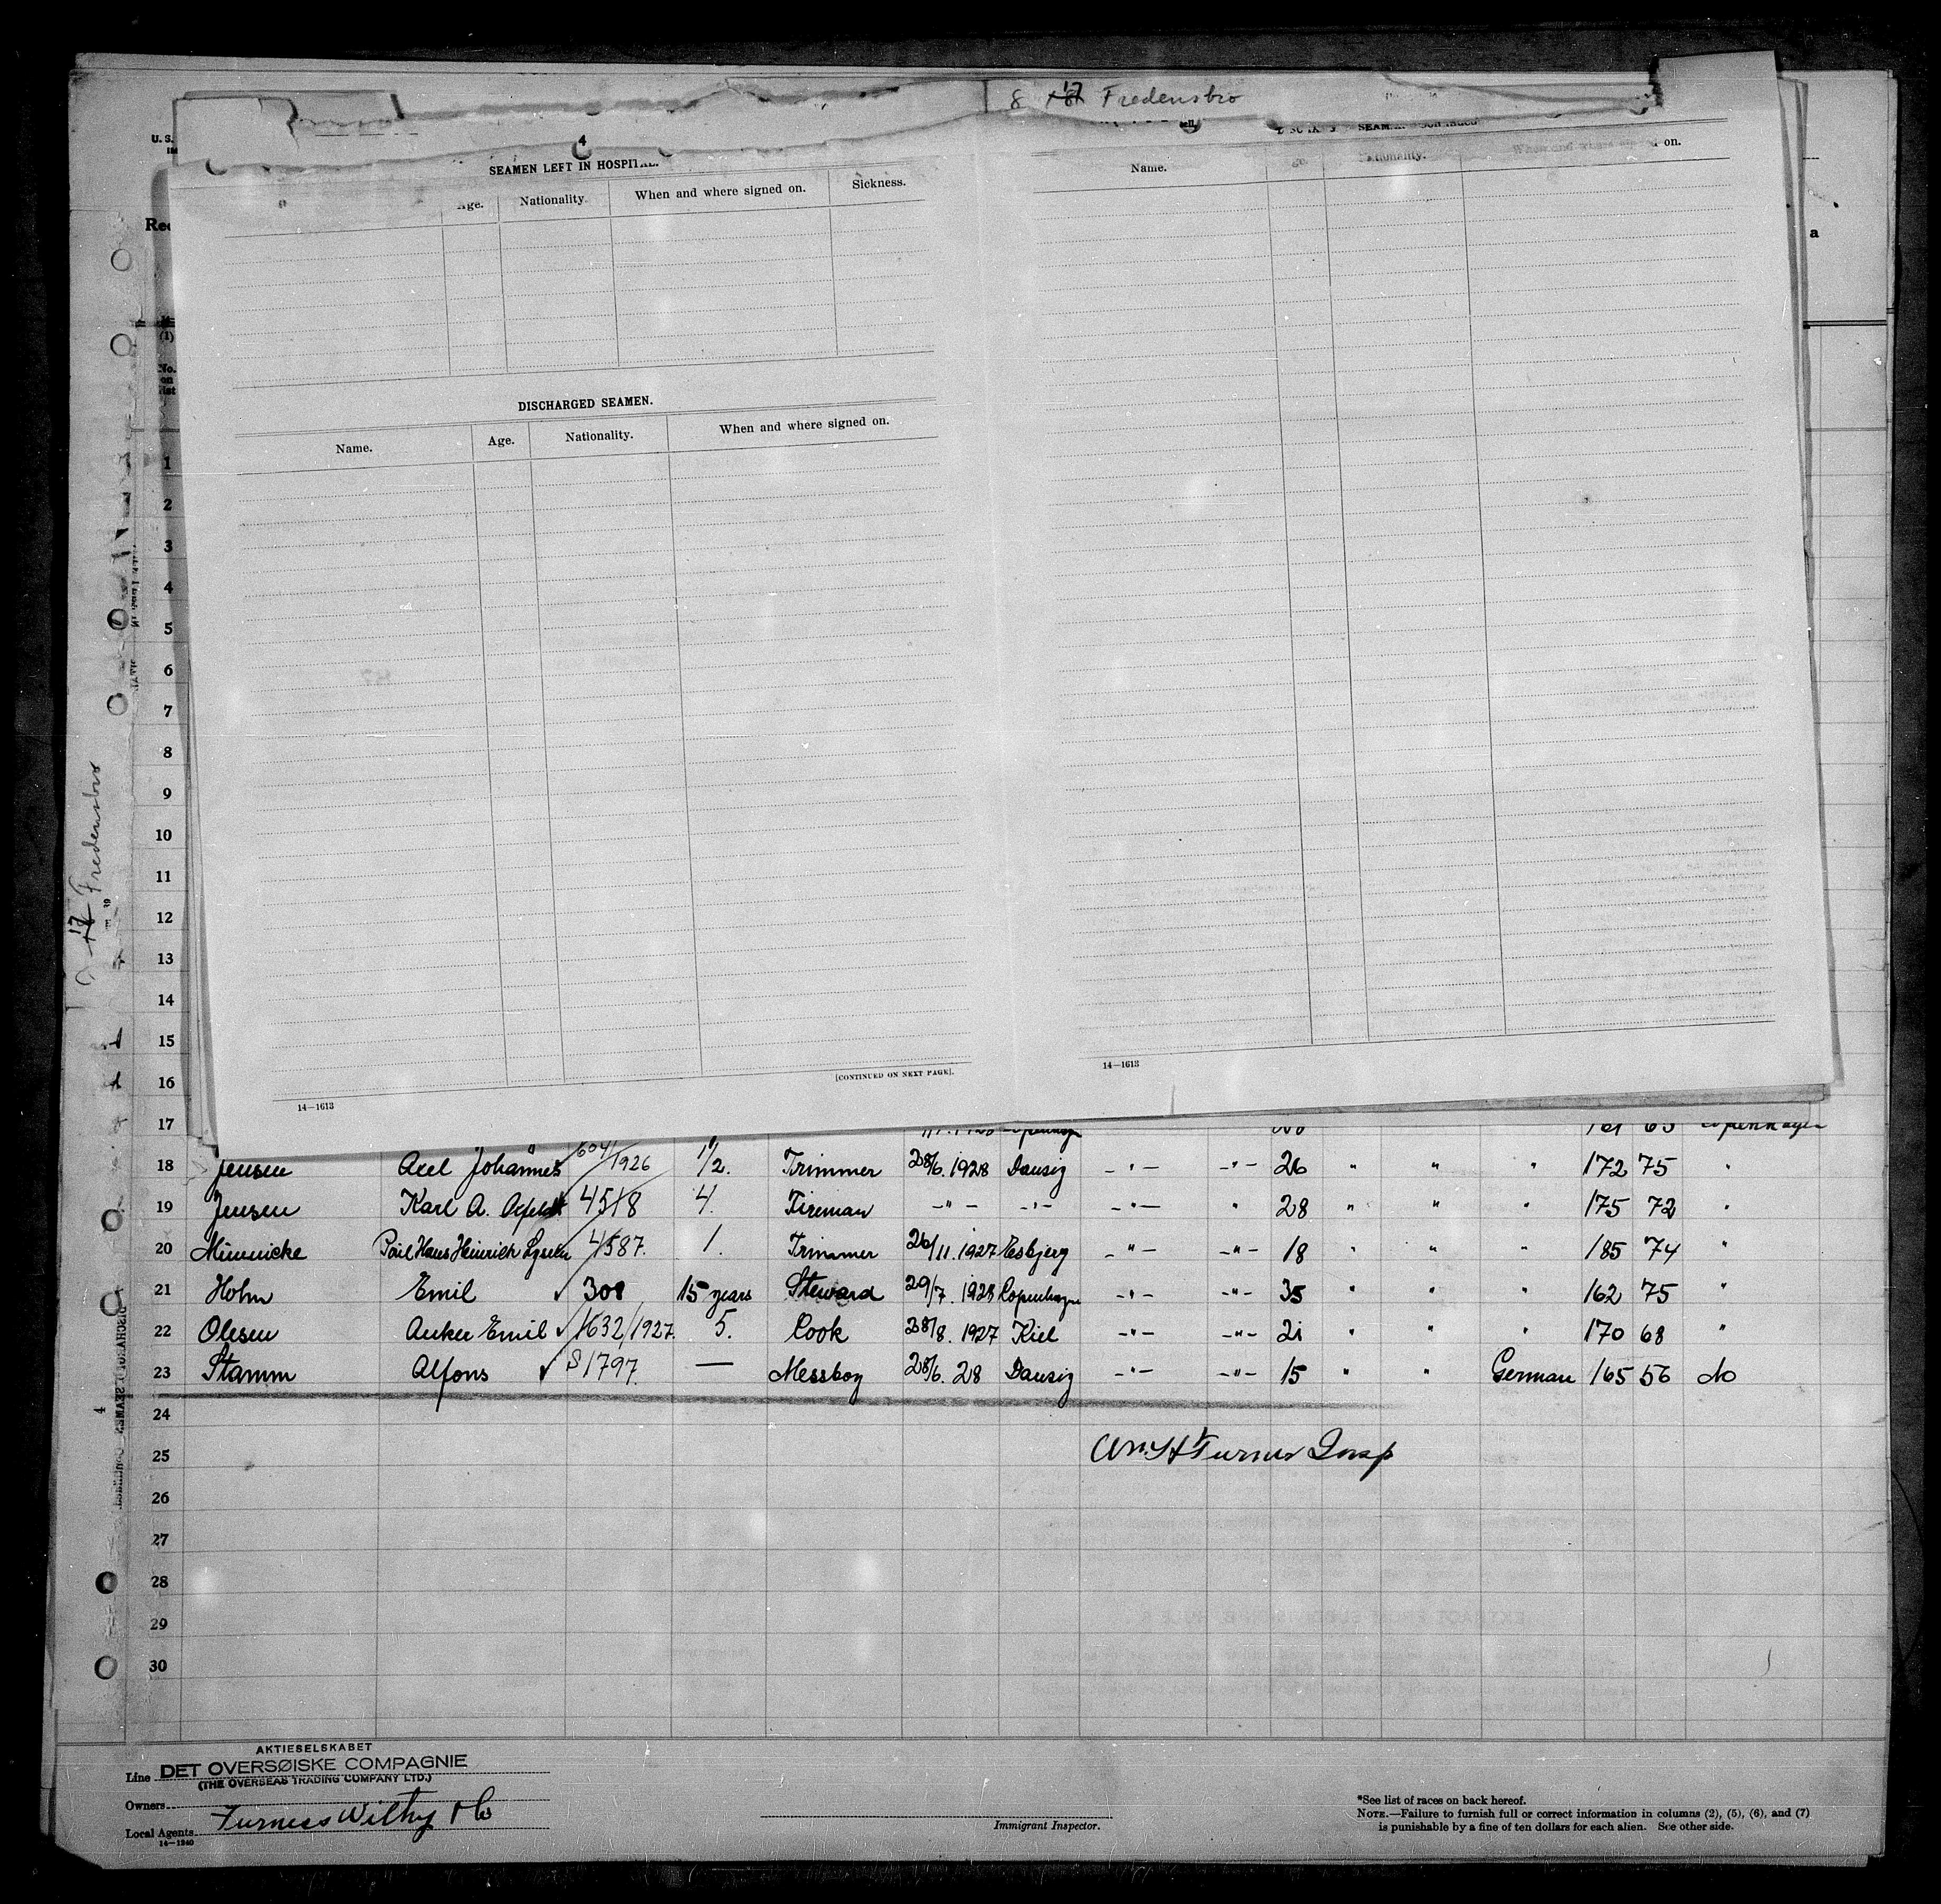 8 17 Fredensbro
U. S.
4
SEAMEN LEFT IN HOSPITAL.
Age. Nationality. When and where signed on. Sickness.
DISCHARGED SEAMEN.
Name. Age. Nationality. When and where signed on.
[CONTINUED ON NEXT PAGE].
14—1613
Name. Nationality. When and where signed on.
14—1613
a
(1)
No.
on
list
1
2
3
4
5
6
7
8
9
10
11
12
13
14
15
16
17
18 Jensen Axel Johannes 604/1926 1 1/2. Trimmer 28/6. 1928 Danzig -"- -"- 26 " " " 172 75 "
19 Jensen Karl A. 4518 4. Fireman -"- -"- -"- " 28 " " " 175 72 "
20 Minnicke Paul Hans Heinrich 4587. 1. Trimmer 26/11. 1927 Esbjerg -"- -"- 18 " " " 185 74 "
21 Holm Emil 308 15 years Steward 29/7. 1928 Copenhagen -"- -"- 35 " " " 162 75 "
22 Olesen Anker Emil 1632/1927. 5. Cook 28/8. 1927 Kiel -"- -"- 21 " " " 170 68 "
23 Stamm Alfons S1797. — Messboy 28/6. 28 Danzig -"- -"- 15 " " German 165 56 do
24
25 Wm H Turner Insp
26
27
28
29
30
17 Fredensbro
AKTIESELSKABET
Line DET OVERSØISKE COMPAGNIE
(THE OVERSEAS TRADING COMPANY LTD.)
Owners
Local Agents Furness Withy & Co
14—1240
Immigrant Inspector.
*See list of races on back hereof.
NOTE.—Failure to furnish full or correct information in columns (2), (5), (6), and (7)
is punishable by a fine of ten dollars for each alien. See other side.